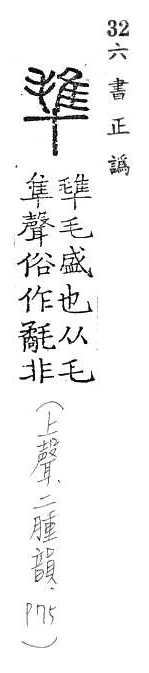 32 六書正譌
𣯍
𣯍毛盛也从毛
隼聲俗作氄非
(上聲.二腫韻.P75)